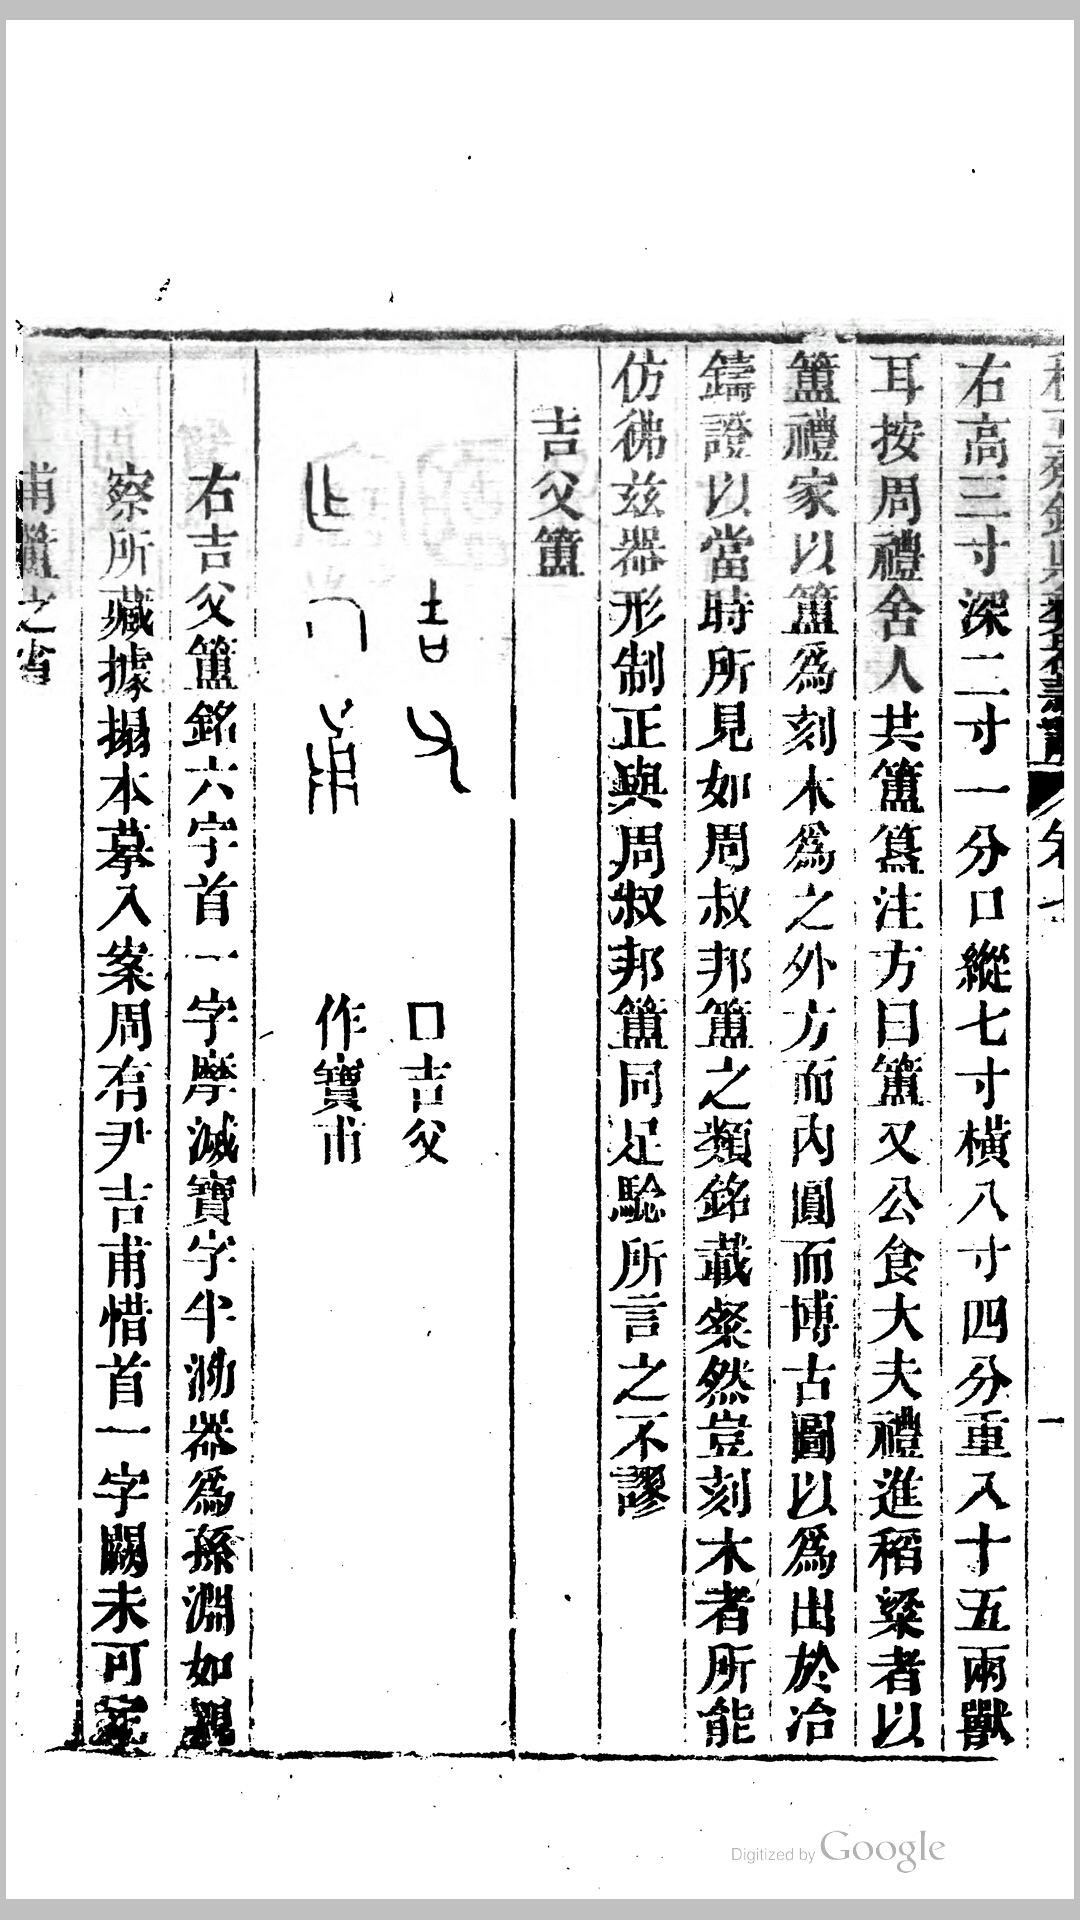 積古齋鐘鼎彝器款識 卷七 一
右高三寸深二寸一分口縱七寸橫八寸四分重入十五兩獸
耳按周禮舍人共簠簋注方曰簠又公食大夫禮進稻粱者以
簠禮家以簠爲刻木爲之外方而內圓而博古圖以爲出於冶
鑄證以當時所見如周叔邦簠之類銘載粲然豈刻木者所能
仿彿兹器形制正與周叔邦簠同足騐所言之不謬
吉父簠
口吉父
作寶甫
右吉父簠銘六字首一字摩滅寶字半泐器爲孫淵如觀
察所藏據搨本摹入案周有尹吉甫惜首一字闕未可定
甫簠之省
Digitized by Google